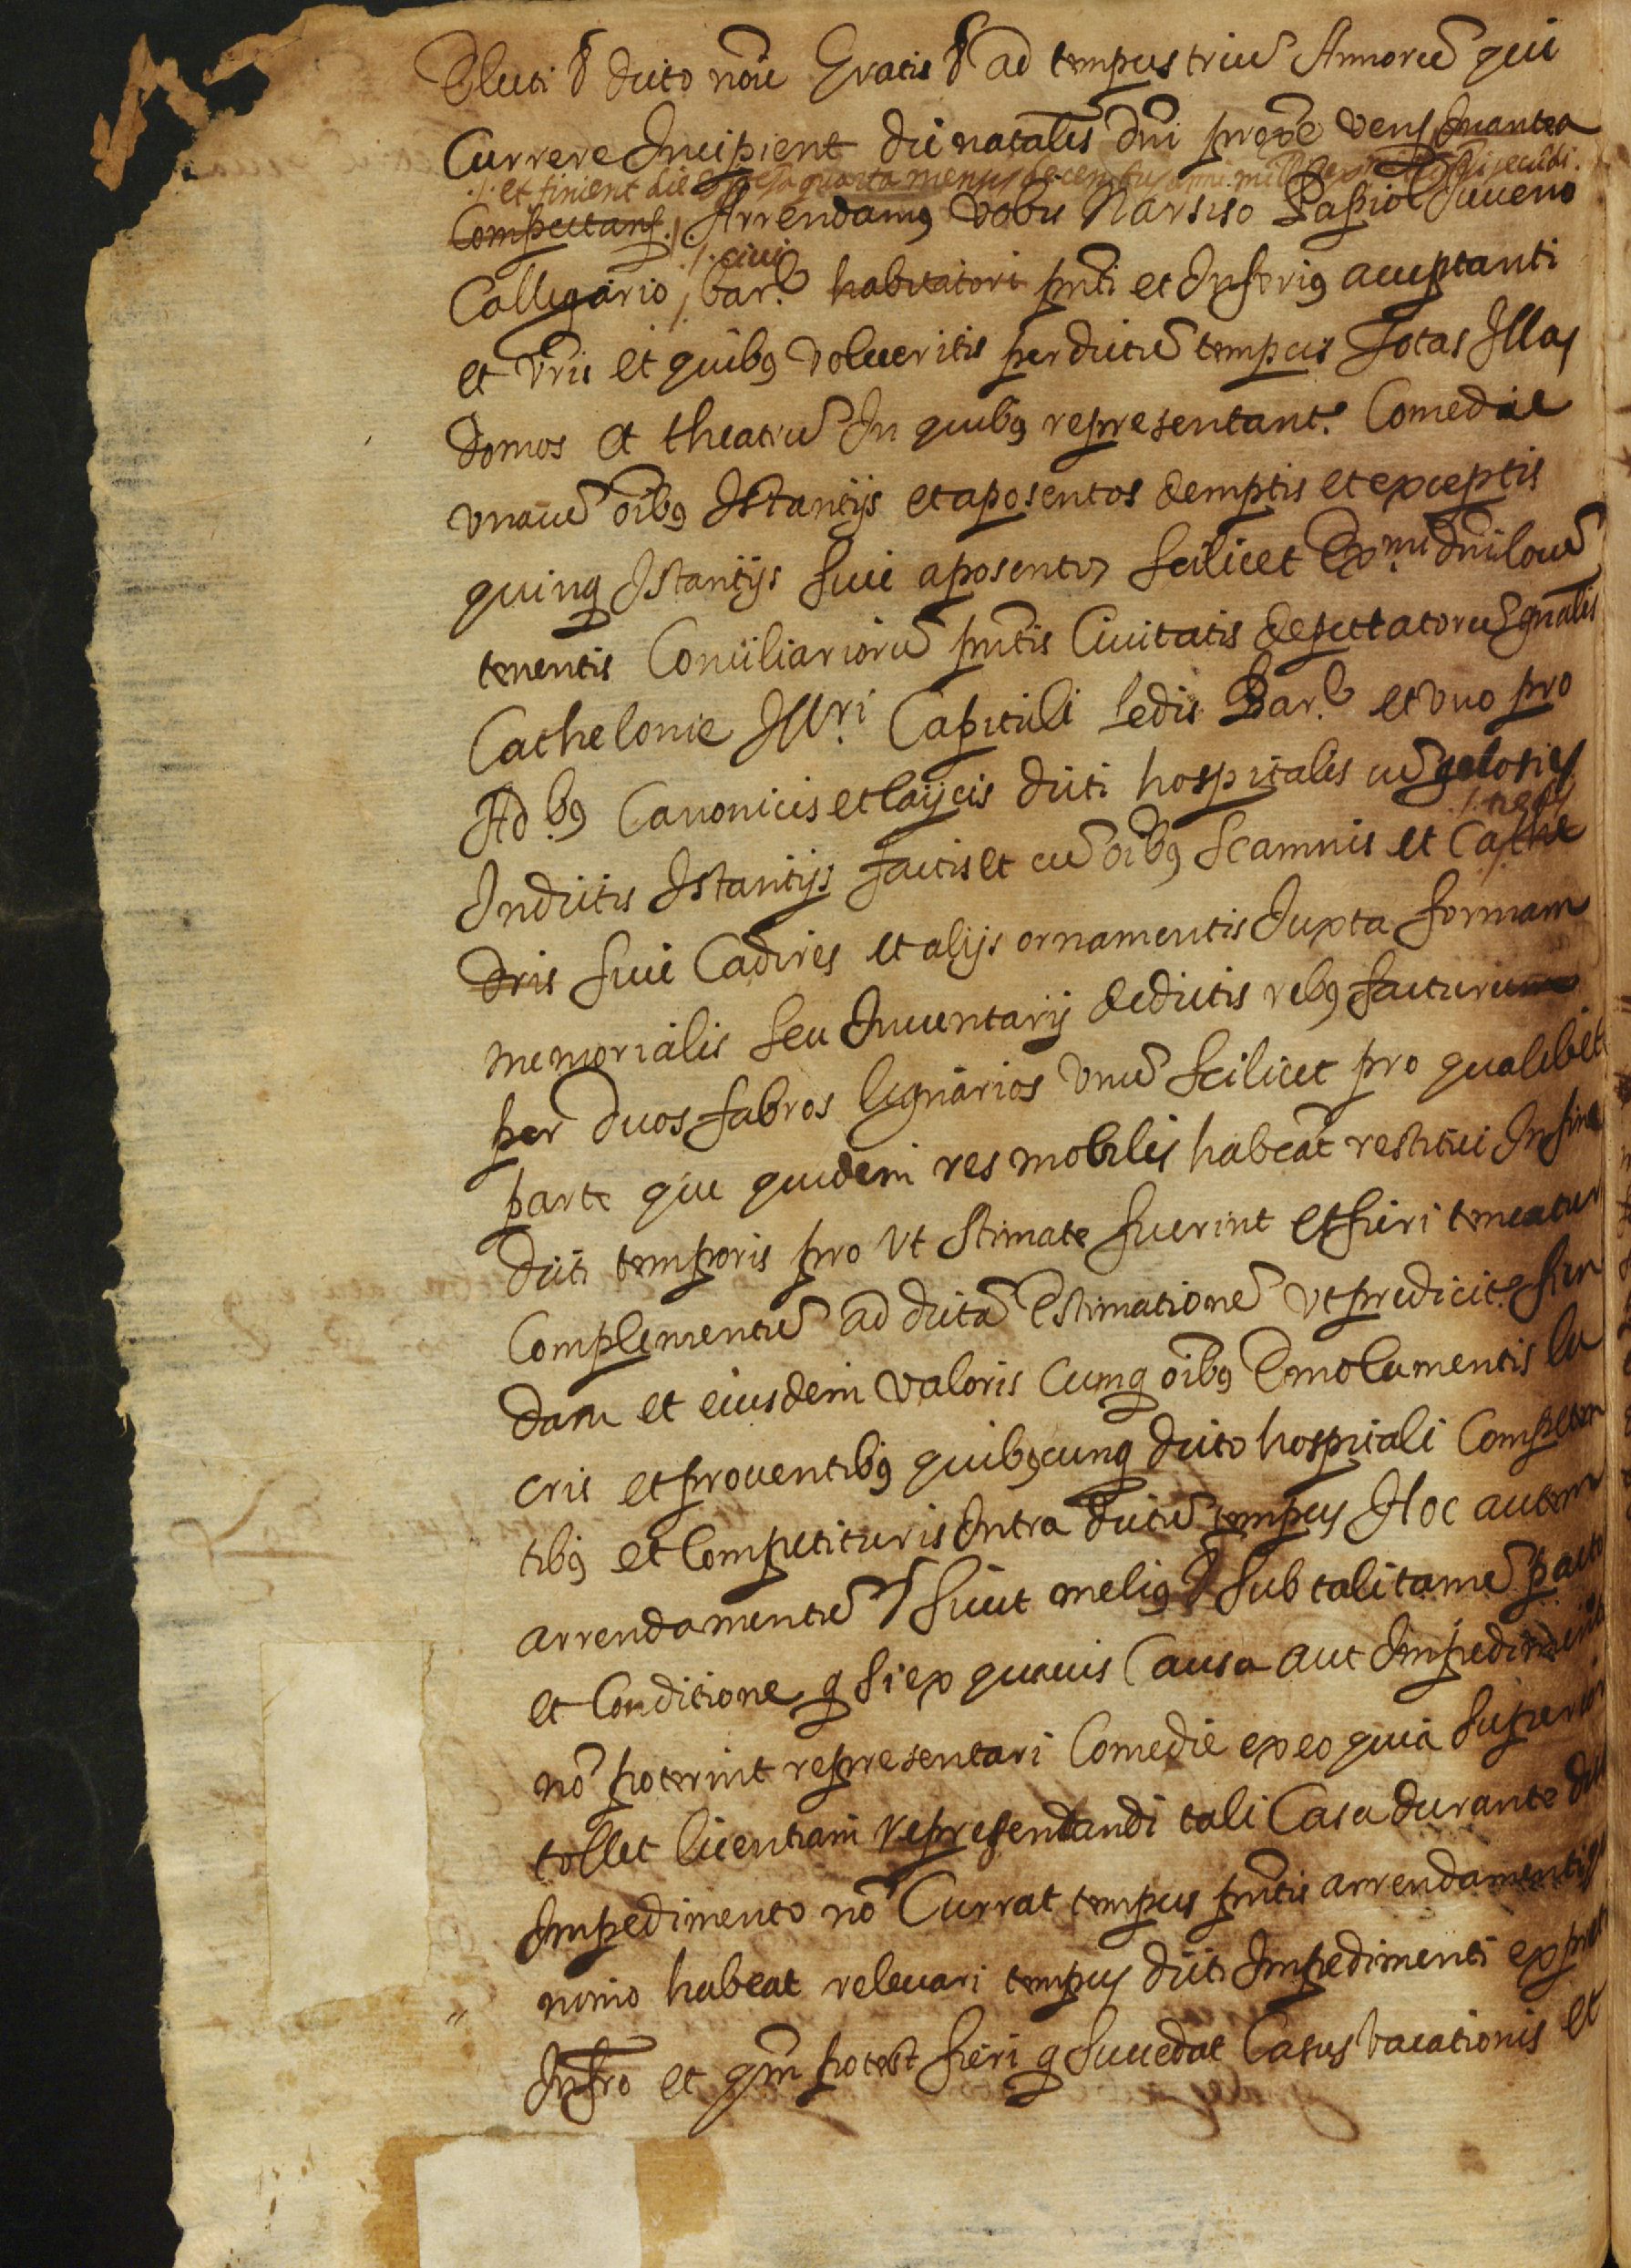 dicti & dicto noie Gratis & ad tempus triū Annorū qui
Currere Incipient die natalis dni proxe vens Inantea
./. et finient die vigesa quarta mensis decembris anni mill
Compectans ./. Arrendamus vobis Narsiso Papiol Juveno
./. civi
Callegario / bar.ª habitatori pnti et Inferius acceptanti
et vris et quibus volueritis per dictū tempus Totas Illas
domos et theatrū In quibus representant.r Comediae
vnacū oibus Istantijs et aposentos demptis et exceptis
quinq Istantijs sive aposentos scilicet Ex.mi dni locū
tenentis Consiliariorū pntis Civitatis deputatorū gnalis
Cathelonie Ill.ri Capituli sedis Bar.e et vno pro
Ad.bus Canonicis et laijcis dicti hospitalis cū gelosies
Indictis Istantijs factis et cū oibus scamnis et Cathe
dris sive Cadires et alijs ornamentis Juxta formam
memorialis seu Inventarij de dictis rebus facturum
per duos fabros lignarios vnū scilicet pro qualibet
parte que quidem res mobiles habeāt restitui In fine
dicti temporis pro vt stimate fuerint et fieri teneatur
Complementū ad dictā estimationē vt predicit.r
dam et eiusdem valoris Cumq oibus Emolumentis lu
cris et proventibus quibuscunq dicto hospitali Competen
tibus et Competituris Intra dictū tempus Hoc autem
arrendamentū & sicut melius & sub tali tamē pacto
et Conditione q si ex quavis Causa aut Impedimento
nō poterint representari Comedie ex eo quia superior
tollet licentiam representandi tali Casu durante dic
Impedimento nō Currat tempus pntis arrendamenti
nimo habeat relevari tempus dicti Impedimenti ex
Infro et qm potest fieri q succedat Casus vacationis et